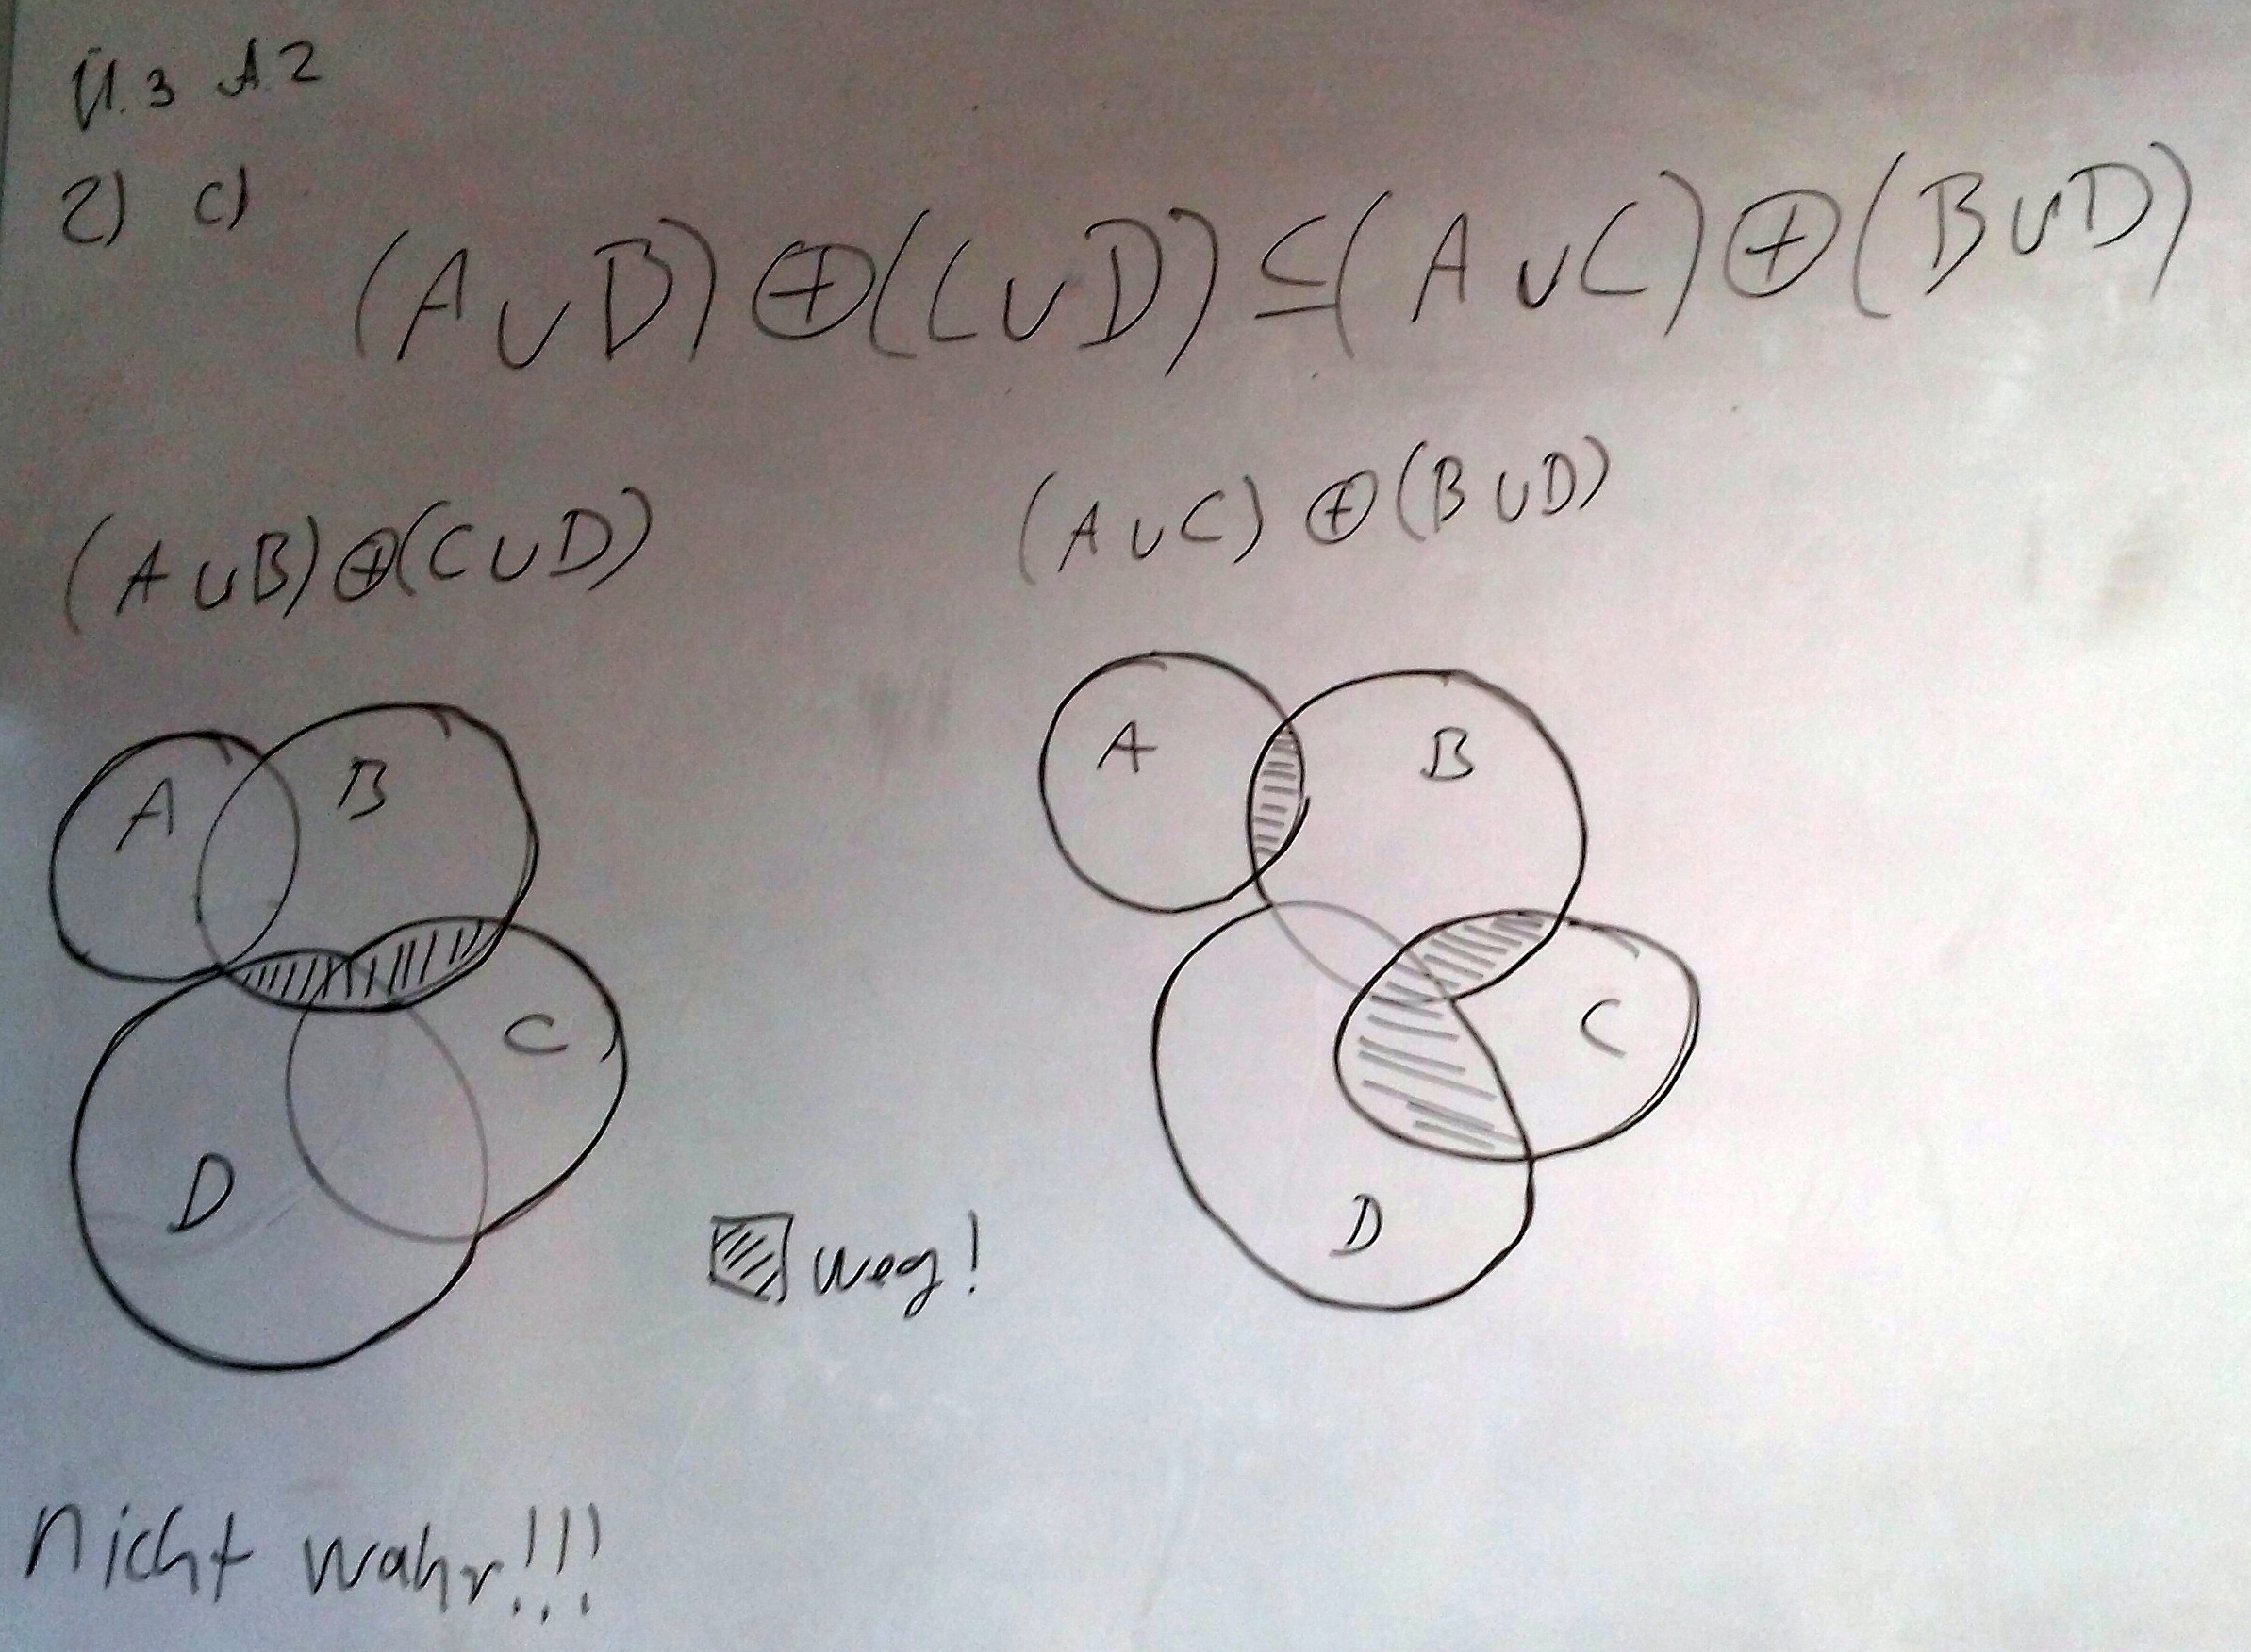 Ü.3 A.2
2) c)
(A∪B)⊕(C∪D)⊆(A∪C)⊕(B∪D)
(A∪B)⊕(C∪D)
(A∪C)⊕(B∪D)
A B
C
D
A B
C
D
weg!
nicht wahr!!!